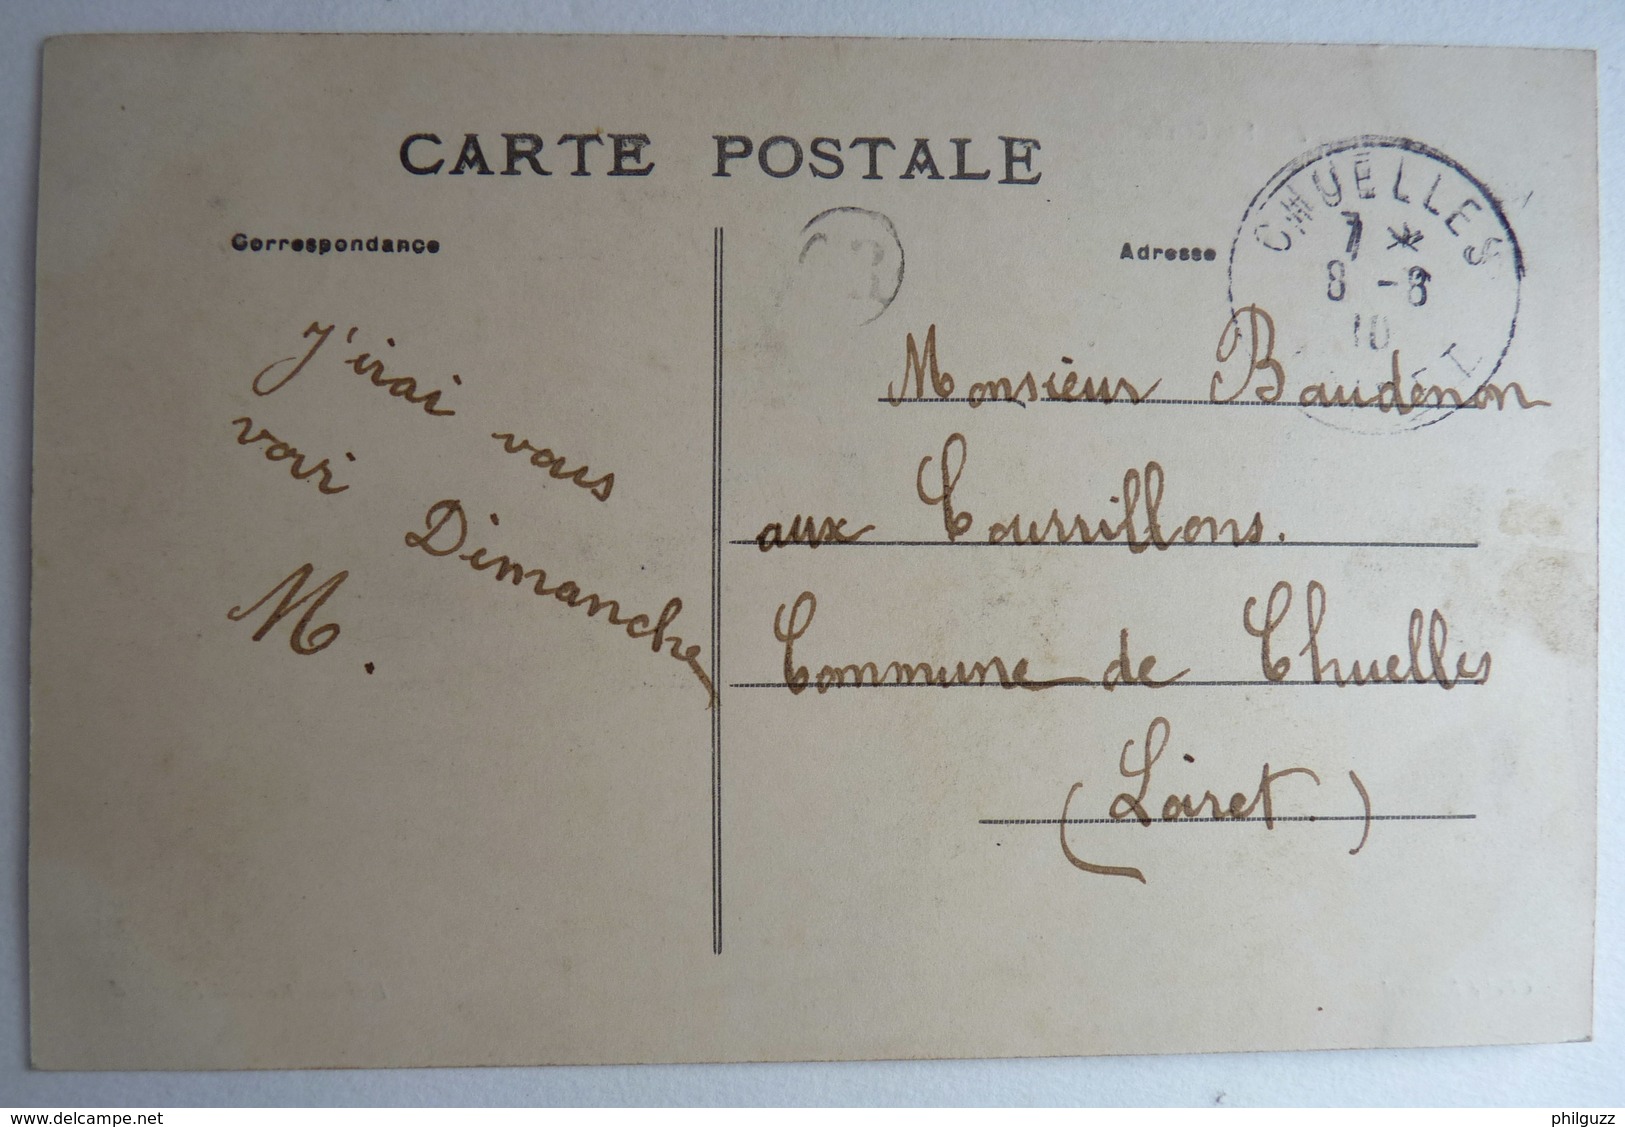 CARTE POSTALE
Correspondance
Adresse
J'irai vous
voir Dimanche
M.
CHUELLES
7 *
8 - 8
10
Monsieur Baudenon
aux Tourrillons.
Commune de Chuelles
(Loiret.)
www.delcampe.net
philguzz